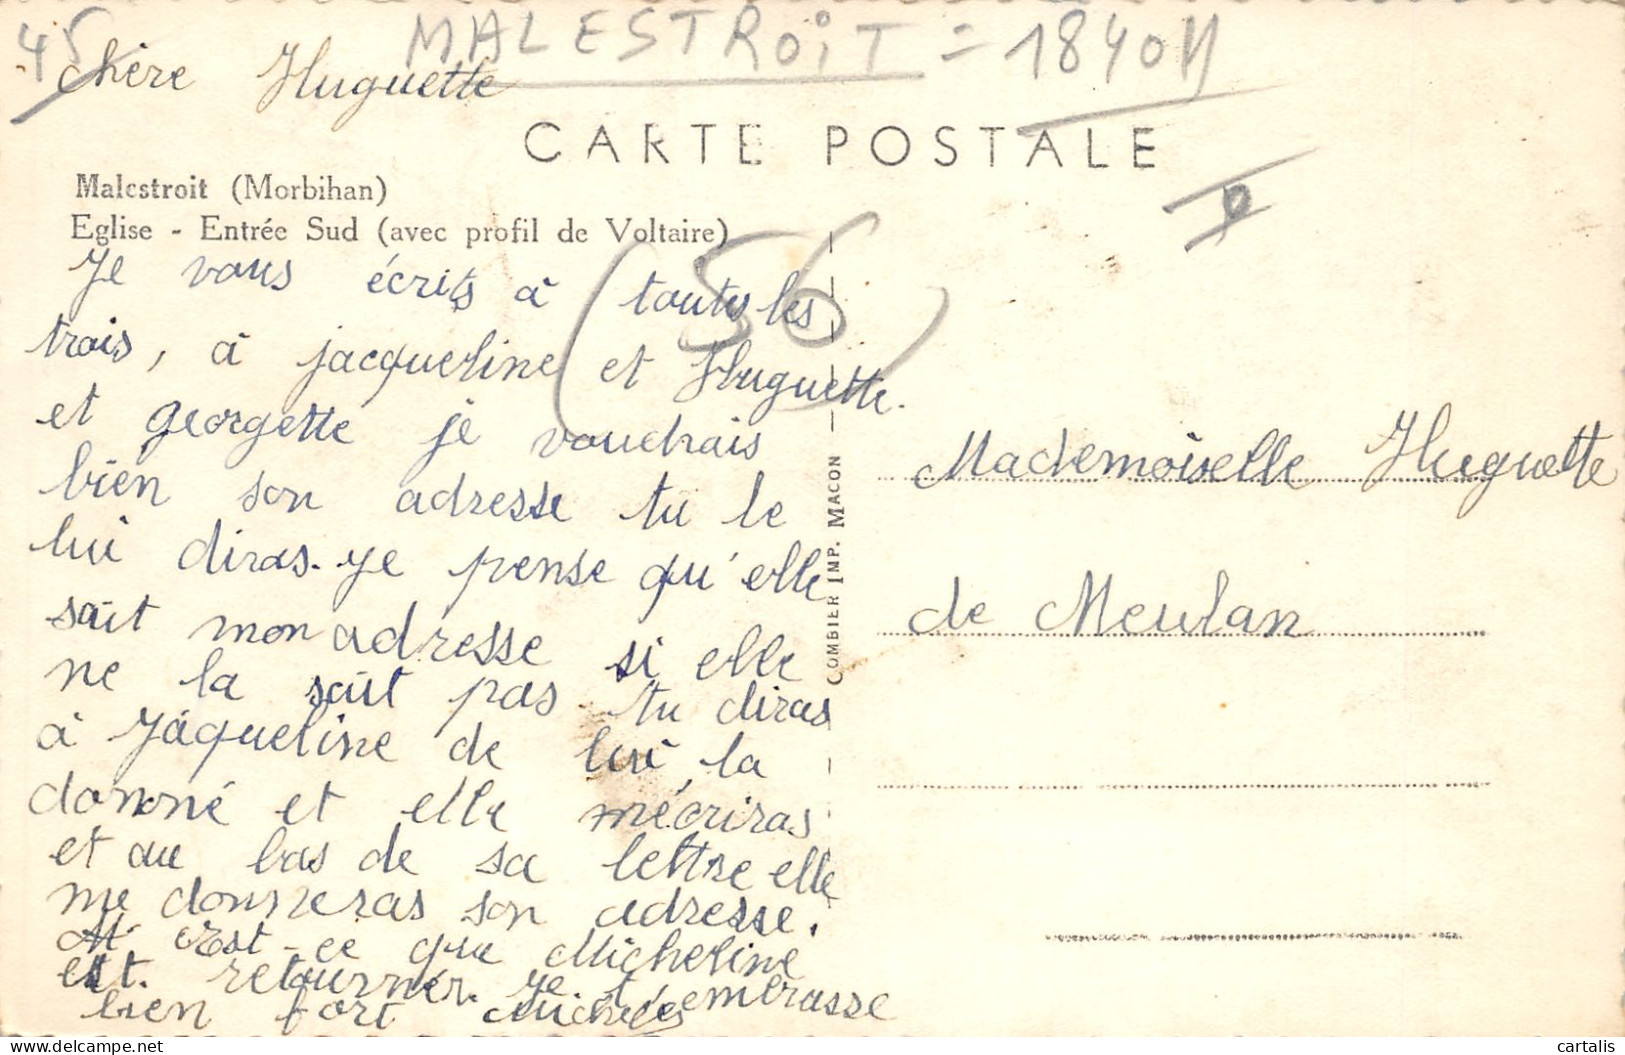 45
MALESTROiT = 18401
chère Huguette
CARTE POSTALE
Malestroit (Morbihan)
Eglise - Entrée Sud (avec profil de Voltaire)
(56)
Je vous écrits à toutes les
trois, à jacqueline et Huguette.
et georgette je voudrais
bien son adresse tu le
lui diras. Je pense qu'elle
sait mon adresse si elle
ne la sait pas tu diras
à Jáqueline de lui la
donné et elle mécriras
et au bas de sa lettre elle
me donneras son adresse.
Est-ce que Micheline
est retournér. Je t'embrasse
bien fort
COMBIER IMP. MACON
Mademoiselle Huguette
de Meulan
cartalis